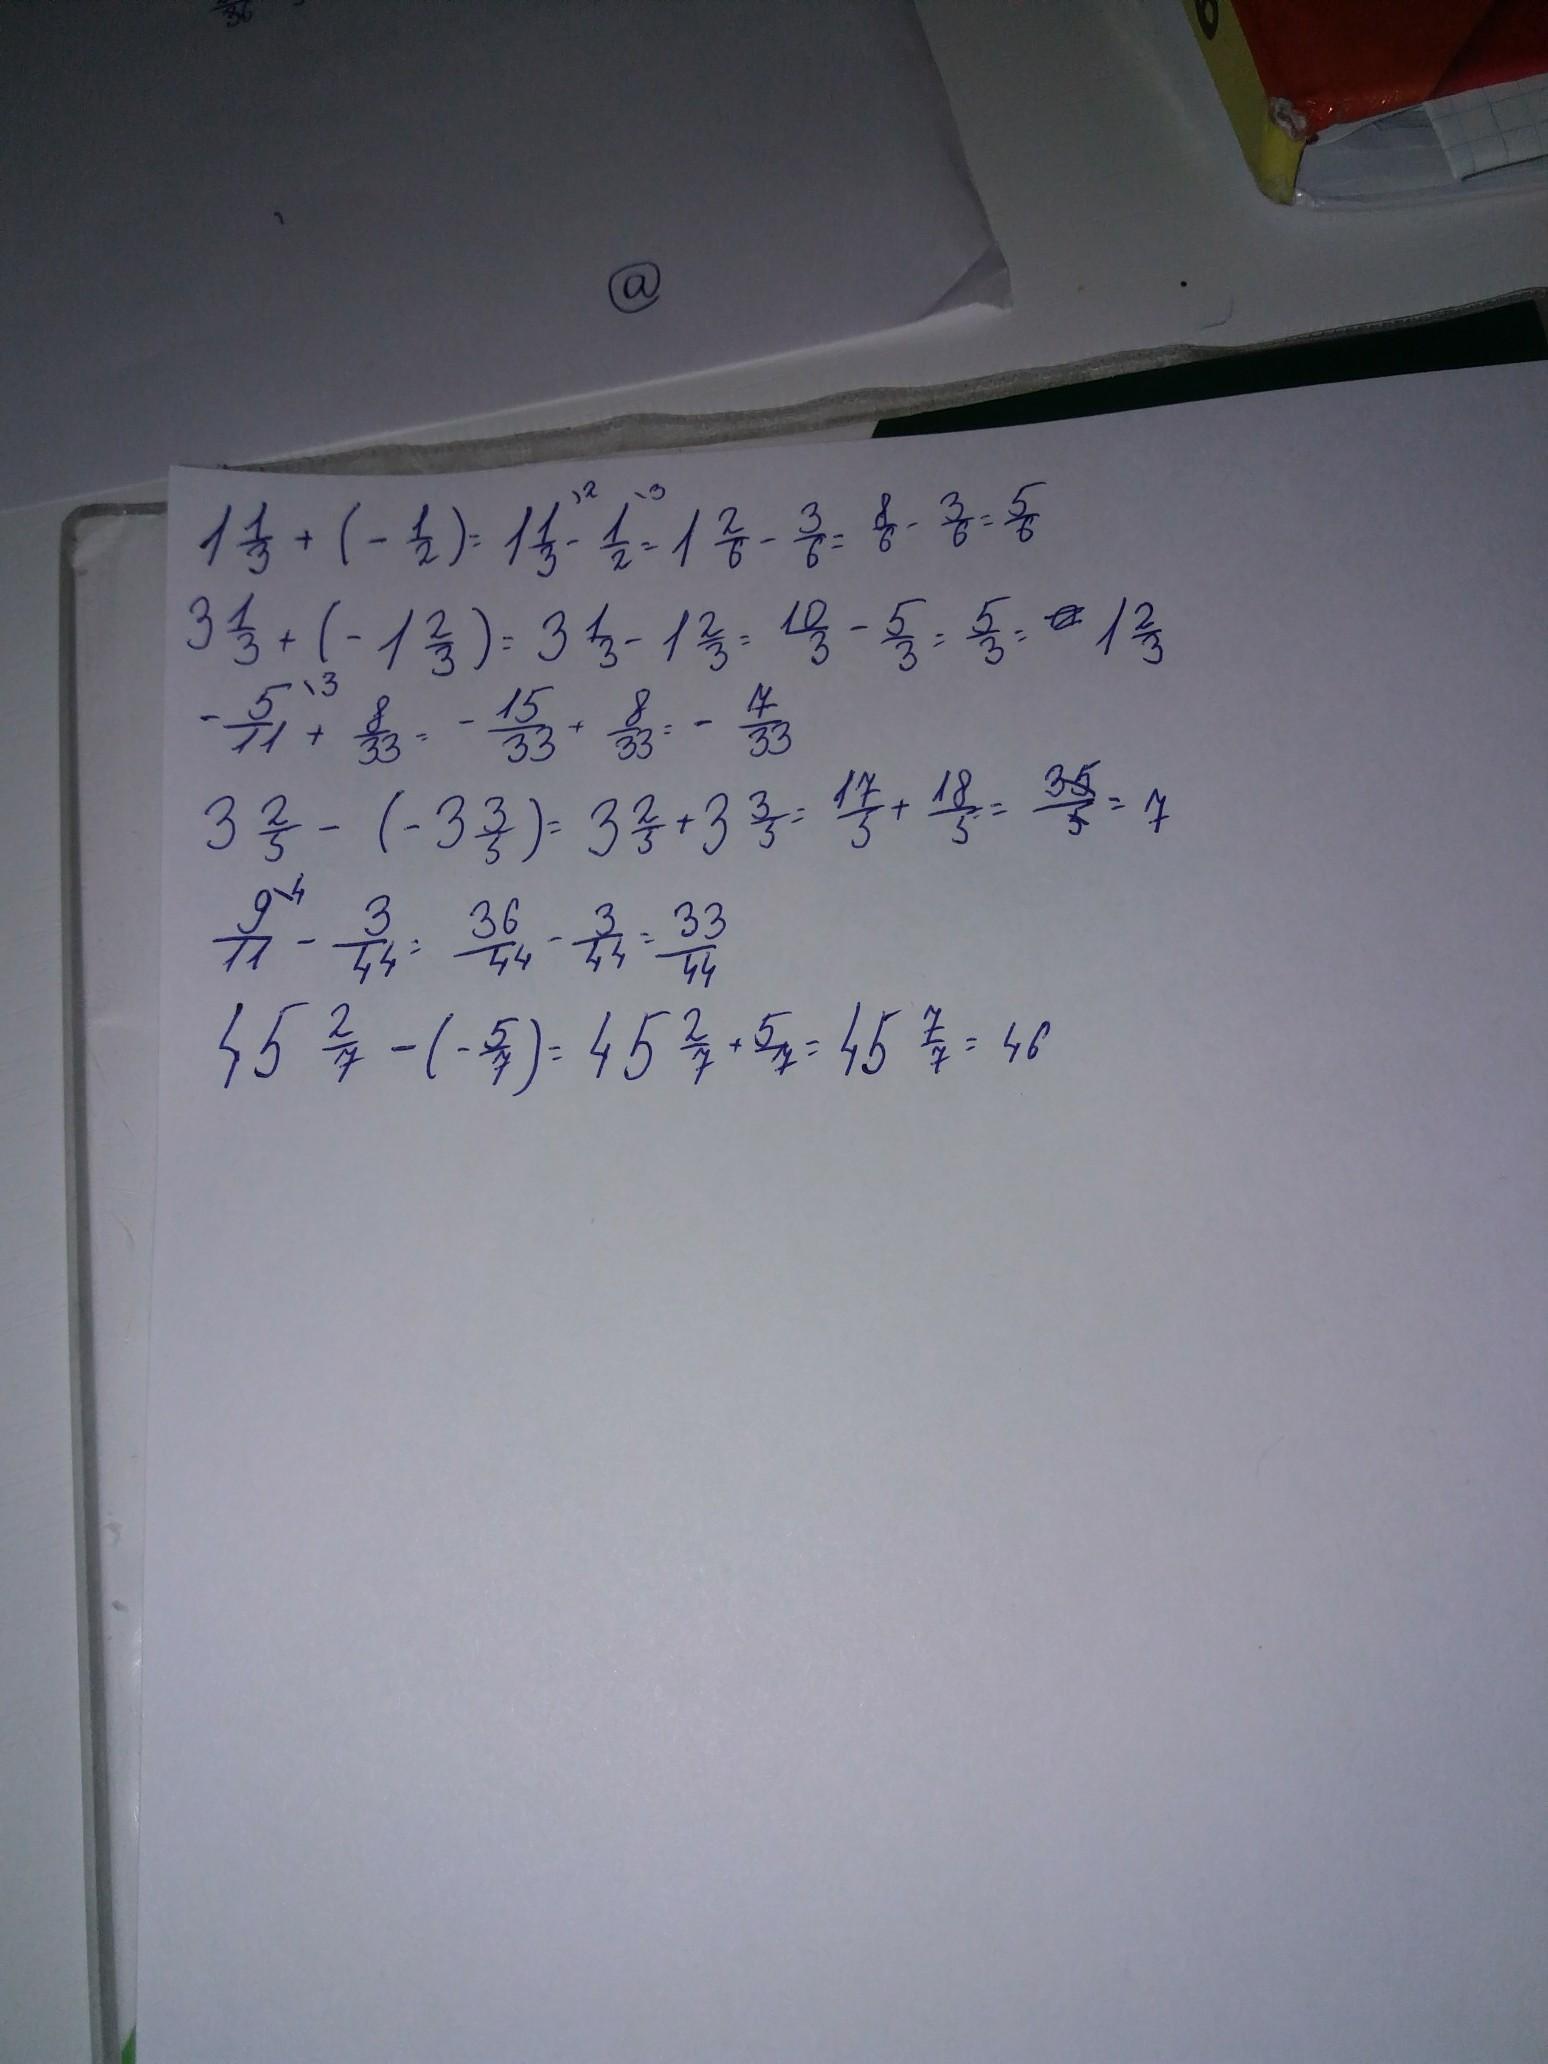 36
@
1 1/3 + (- 1/2) = 1 1/3 \2 - 1/2 \3 = 1 2/6 - 3/6 = 8/6 - 3/6 = 5/6
3 1/3 + (- 1 2/3) = 3 1/3 - 1 2/3 = 10/3 - 5/3 = 5/3 = 1 2/3
- 5/11 \3 + 8/33 = - 15/33 + 8/33 = - 7/33
3 2/5 - (- 3 3/5) = 3 2/5 + 3 3/5 = 17/5 + 18/5 = 35/5 = 7
9/11 \4 - 3/44 = 36/44 - 3/44 = 33/44
45 2/7 - (- 5/7) = 45 2/7 + 5/7 = 45 7/7 = 46